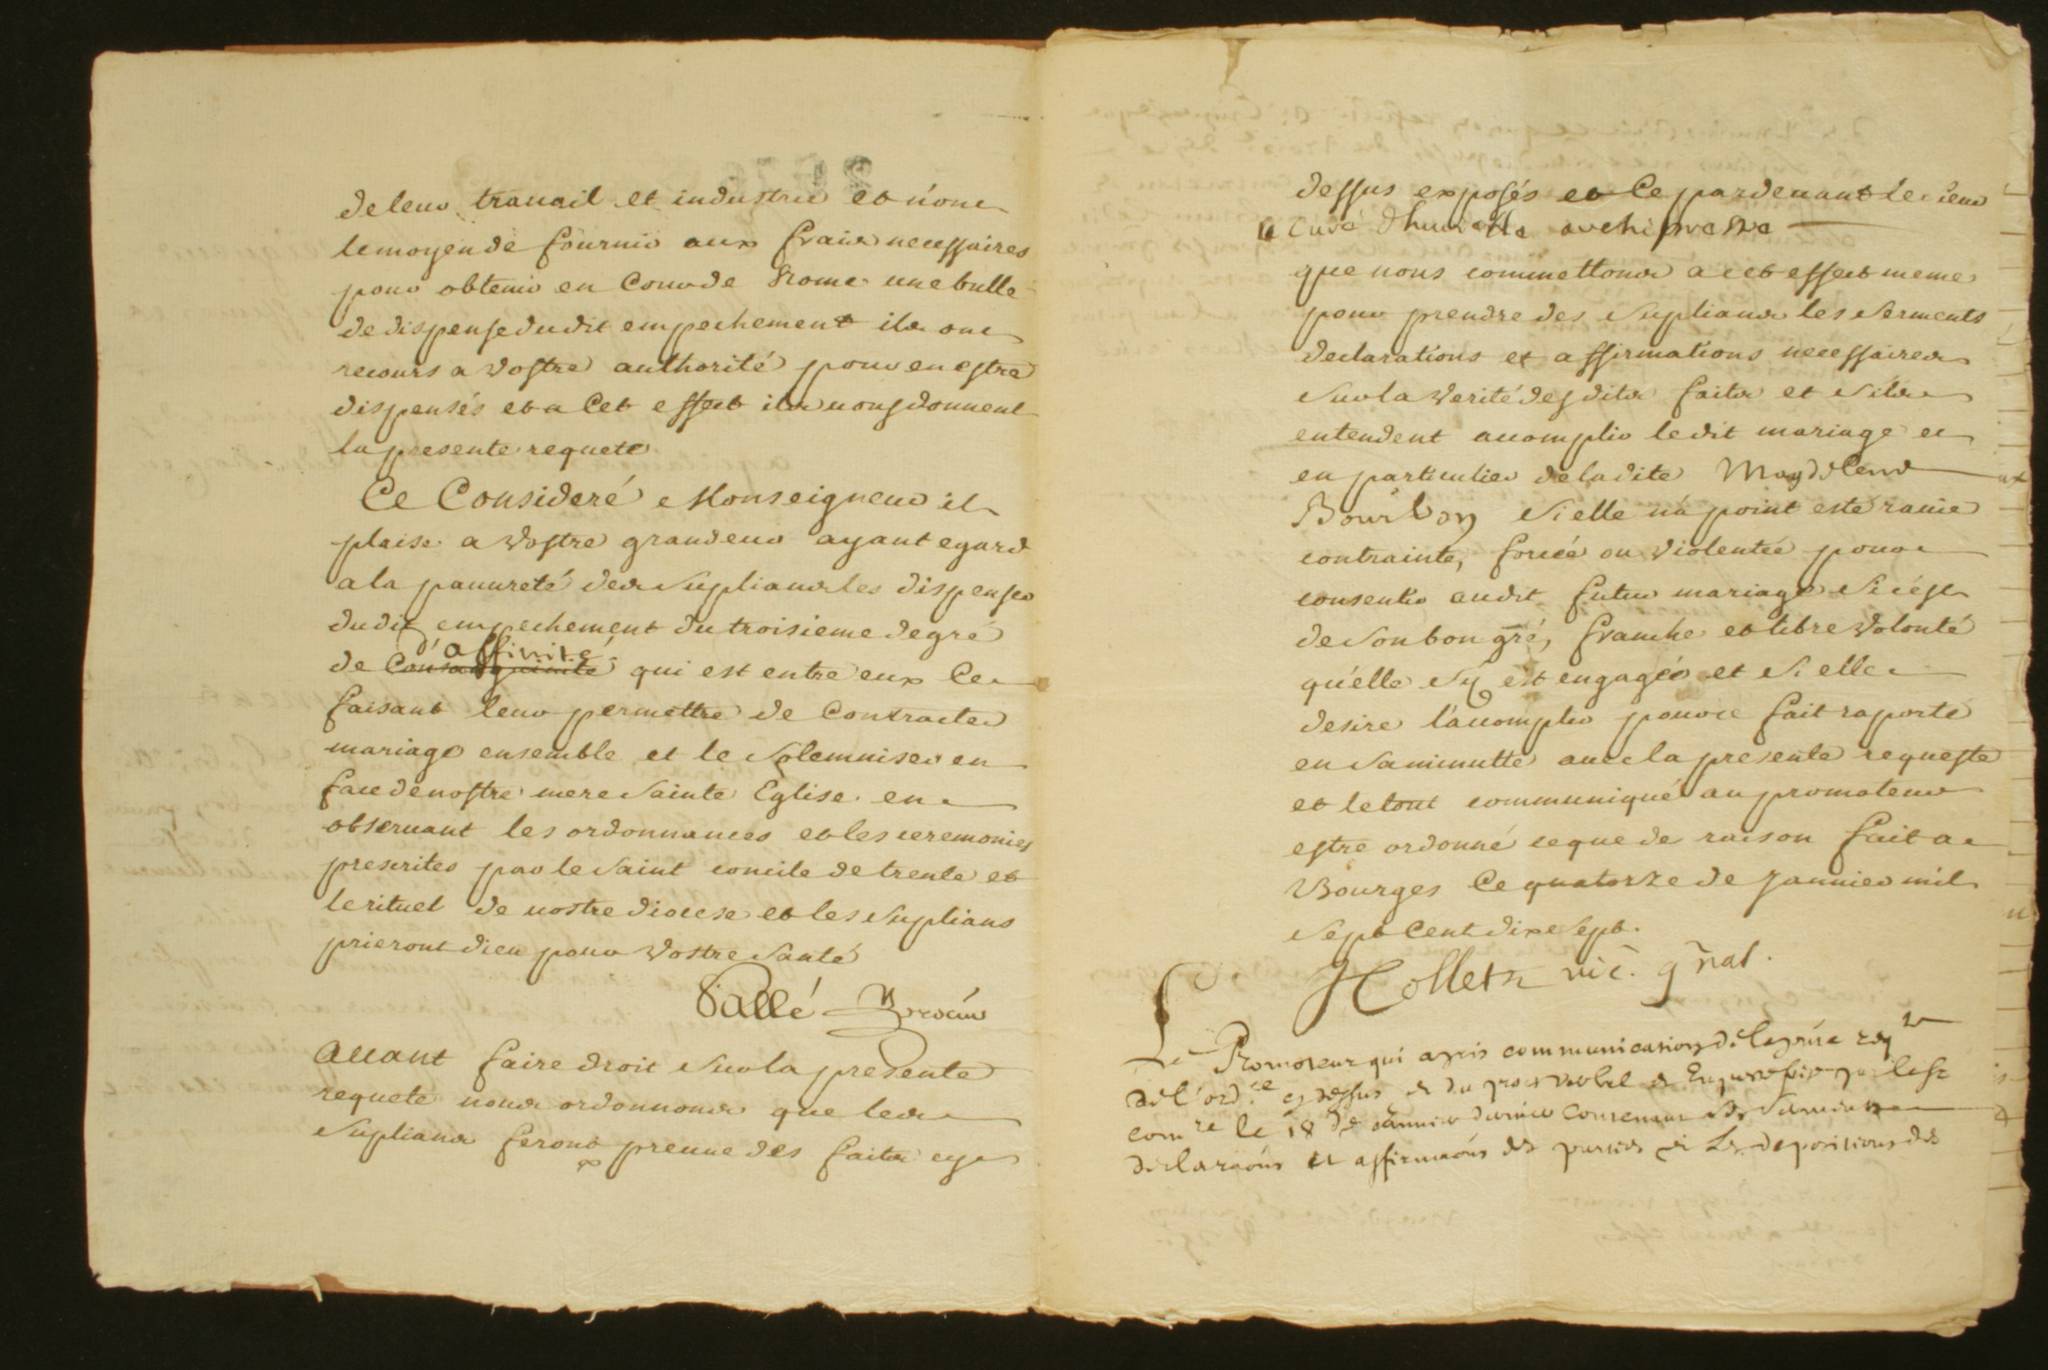 de leur travail et industrie et n'ont
le moyen de fournir aux frais necessaires
pour obtenir en Cour de Rome une bulle
de dispense dudit empechement ils ont
recours a vostre authorité pour en estre
dispensés et a Cet effect ils nous donnent
la presente requete
Ce Consideré Monseigneur il
plaise a vostre grandeur ayant egard
a la pauureté des suplians les dispenser
dudit empechement du troisieme degré
d'affinité
de Consanguinité qui est entre eux Ce
faisant leur permettre de Contracter
mariage ensemble et le solemniser en
face de nostre mere sainte Eglise en
obseruant les ordonnances et les ceremonies
prescrites par le saint concile de trente et
le rituel de nostre diocese et les suplians
prieront dieu pour vostre santé
Vallé
Auant faire droit sur la presente
requete nous ordonnons que les
suplians feront preuue des faits cy
dessus exposés et Ce pardeuant le sieur
curé d'huriel archiprestre
que nous commettons a cet effect meme
pour prendre des suplians les serments
declarations et affirmations necessaires
sur la verité desdits faits et s'ils
entendent accomplir ledit mariage et
en particulier de ladite Magdelene
Bourbon si elle n'a point esté rauie
contrainte, forcée ou violentée pour
consentir audit futur mariage si c'est
de son bon gré, franche et libre volonté
qu'elle s'y est engagée et si elle
desire l'accomplir pour ce fait raporté
en sa minutte auec la presente requeste
et le tout communiqué au promoteur
estre ordonné ce que de raison fait a
Bourges Ce quatorze de januier mil
sept Cent dixsept.
Collet vic. gñal.
Le Promoteur qui a pris communication de la pñte reqte
de l'ordce cy dessus et du proces verbal
comre le 18 de januier dernier Contenant les sermens
declaraõns et affirmaõns des parties et les depositions des